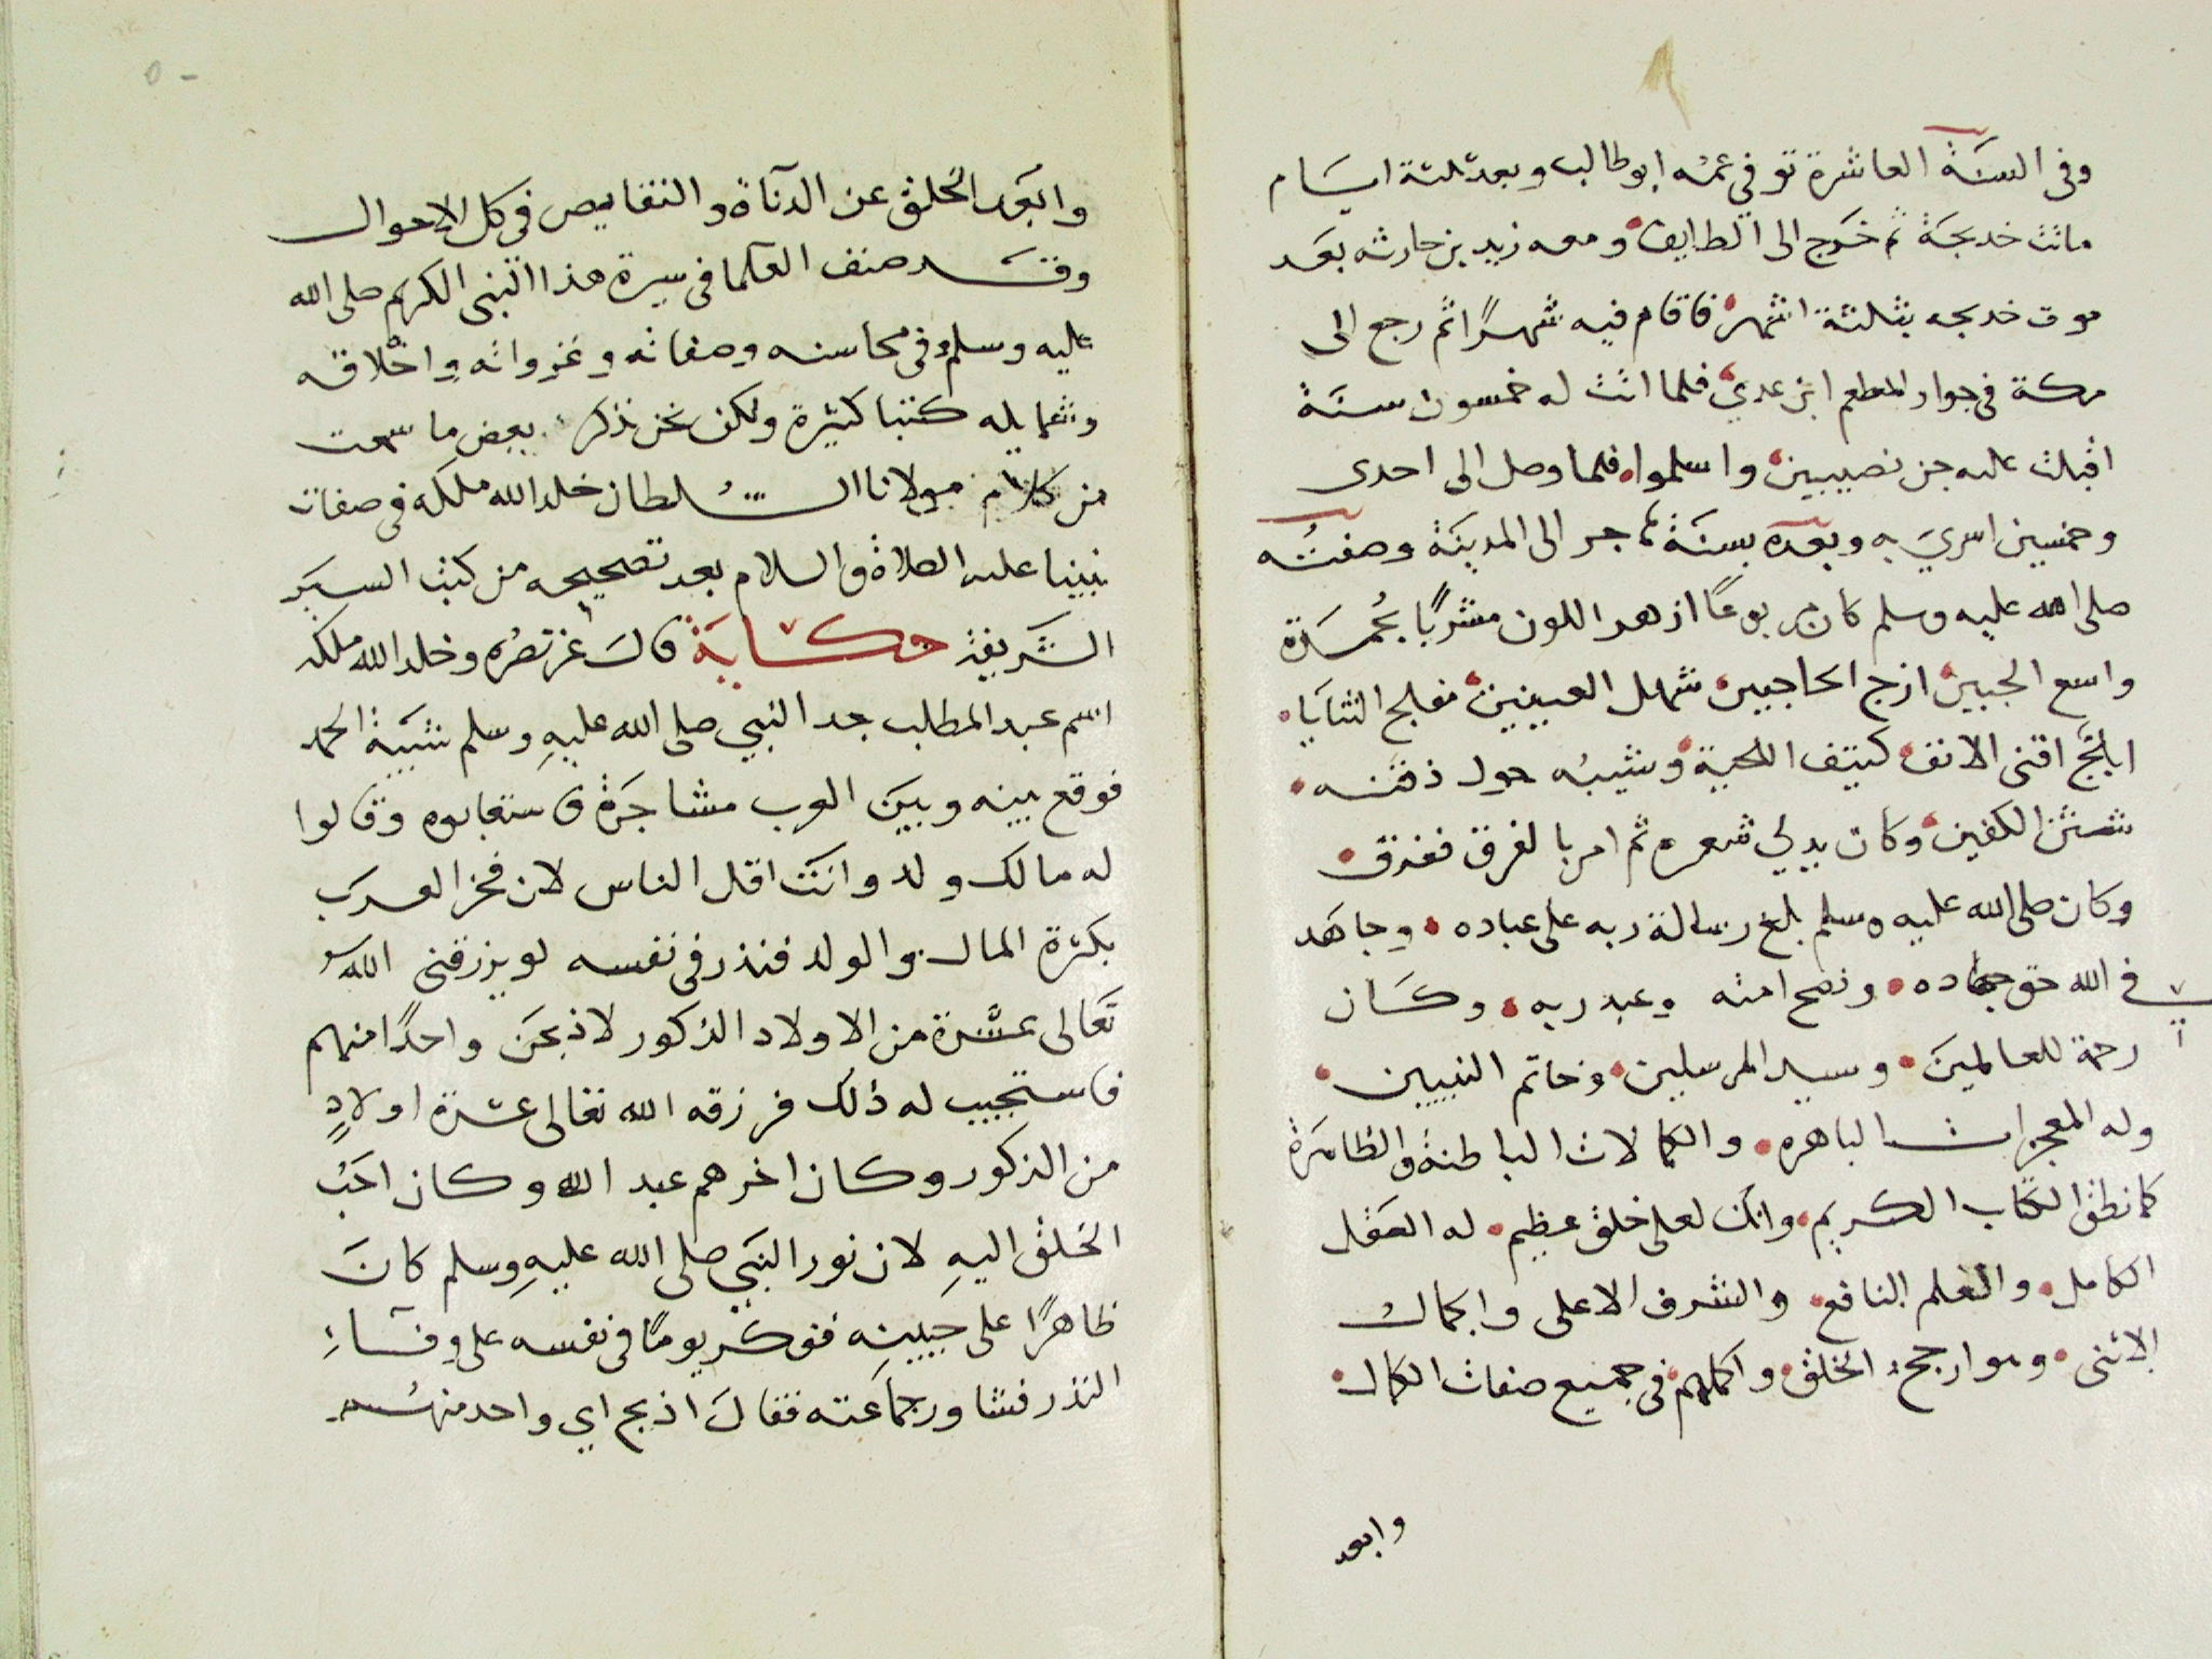 وفى السنة العاشرة توفي عمه ابو طالب وبعد ثلثة ايام
ماتت خديجة ثم خرج الى الطايف ومعه زيد بن حارثه بعد
موت خديجه بثلثة اشهر فاقام فيه شهرًا ثم رجع الى
مكة فى جوار المطعم ابن عدي فلما اتت له خمسون سنة
اقبلت عليه جن نصيبين واسلموا فلما وصل الى احدى
وخمسين اسري به وبعده بسنة هاجر الى المدينة وصفته
صلى الله عليه وسلم كان مربوعًا ازهر اللون مشربًا بحمرة
واسع الجبين ازج الحاجبين شهل العينين مفلج الثنايا
ابلج اقنى الانف كثيف اللحية وشيبه حول ذقنه
شثن الكفين وكان يدلي شعره ثم امر بالفرق ففرق
وكان صلى الله عليه وسلم بلغ رسالة ربه على عباده وجاهد
في الله حق جهاده ونصح امته وعبد ربه وكان
رحمة للعالمين وسيد المرسلين وخاتم النبيين
وله المعجزات الباهره والكمالات الباطنة والظاهرة
كما نطق الكتاب الكريم وانك لعلى خلق عظيم له العقل
الكامل والعلم النافع والشرف الاعلى والجمال
الاثنى وهو ارجح الخلق واكملهم فى جميع صفات الكمال
وابعد
وابعد الخلق عن الدنآة والنقايص فى كل الاحوال
وقد صنف العلما فى سيرة هذا النبى الكريم صلى الله
عليه وسلم وفى محاسنه وصفاته وغزواته واخلاقه
وشمايله كتبا كثيرة ولكن نحن نذكر بعض ما سمعت
من كلام مولانا السلطان خلد الله ملكه فى صفات
نبينا عليه الصلاة والسلام بعد تصحيحه من كتب السير
الشريفة حكاية قال عز نصره وخلد الله ملكه
اسم عبد المطلب جد النبي صلى الله عليهِ وسلم شيبة الحمد
فوقع بينه وبين العرب مشاجرة فاستعابوه وقالوا
له مالك ولد وانت اقل الناس لان فخر العرب
بكثرة المال والولد فنذر فى نفسه لو يرزقنى الله
تعالى عشرة من الاولاد الذكور لاذبحن واحدًا منهم
فاستجيب له ذلك فرزقه الله تعالى عشرة اولادٍ
من الذكور وكان اخرهم عبد الله وكان احب
الخلق اليهِ لان نور النبي صلى الله عليهِ وسلم كان
ظاهرًا على جبينه ففكر يومًا فى نفسه على وفآءِ
النذر فشاور جماعته فقال اذبح اي واحد منهم